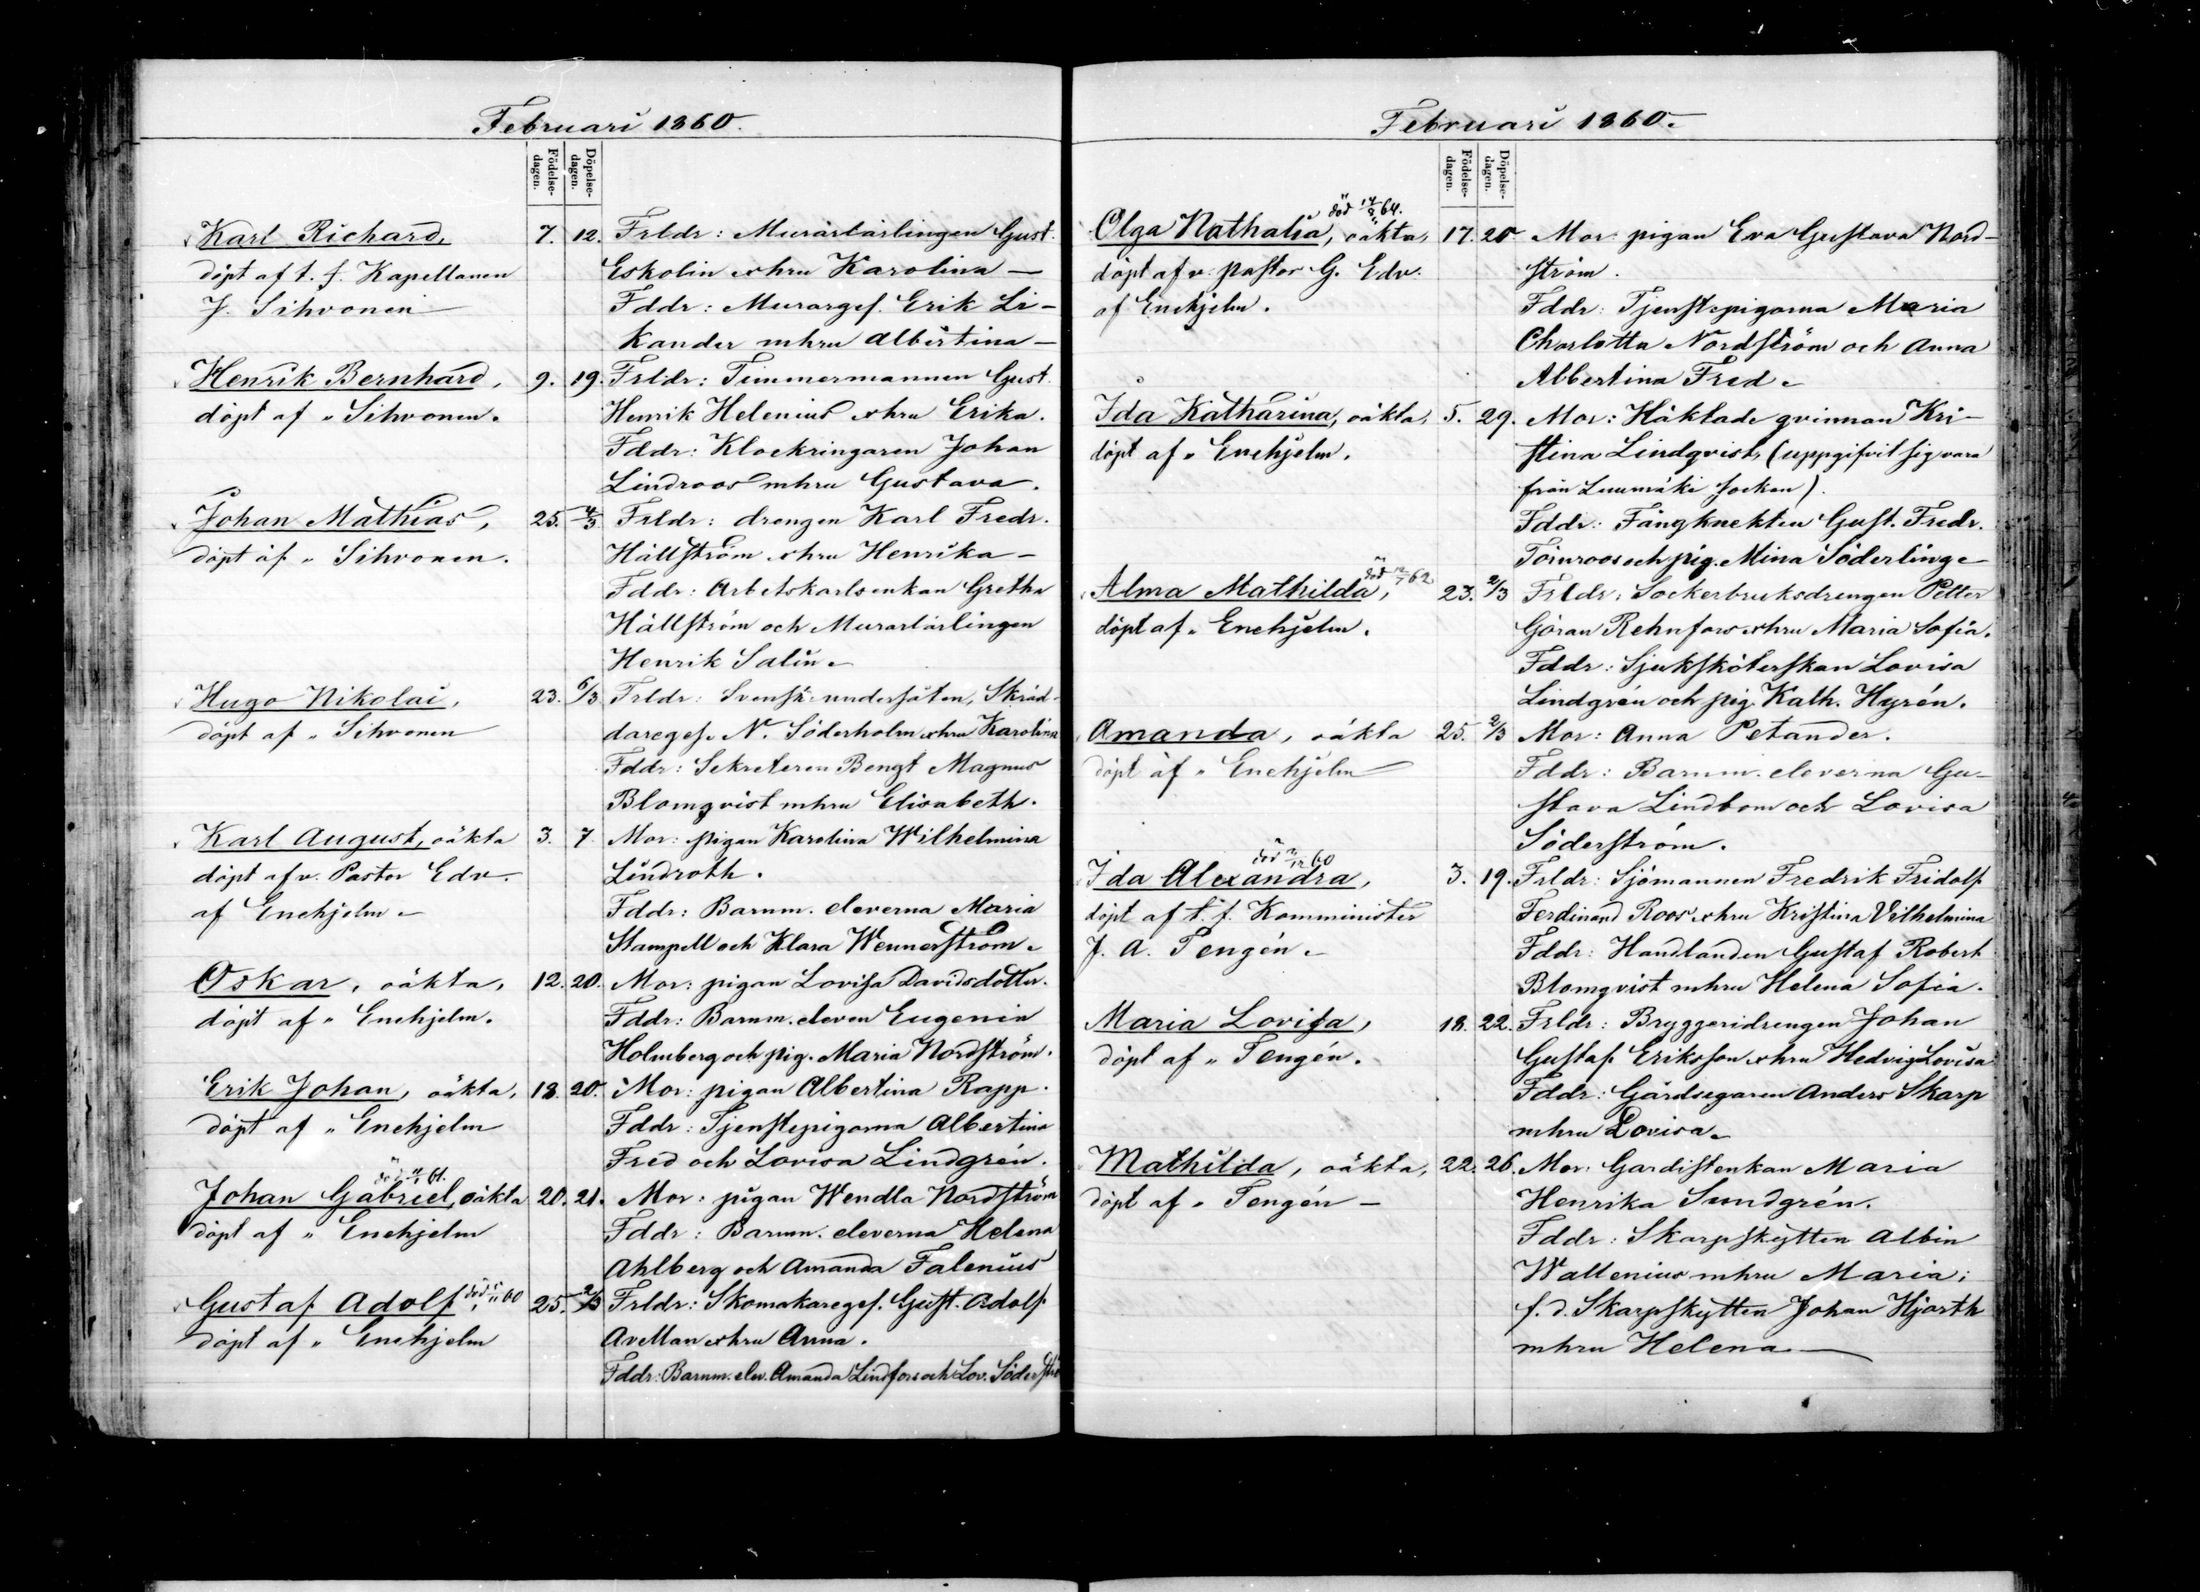 Februari 1860.
Födelse-dagen.
Döpelse-dagen.
Karl Richard, 7. 12. Frldr: Murarlärlingen Gust.
döpt af t. f. Kapellanen Eskolin o hru Karolina —
J. Sihvonen Fddr: Murargef. Erik Li-
kander m hru Albertina —
Henrik Bernhard, 9. 19. Frldr: Timmermannen Gust.
döpt af „ Sihvonen. Henrik Helenius o hru Erika.
Fddr: Klockringaren Johan
Lindroos m hru Gustava.
Johan Mathias, 25. 4/3 Frldr: drengen Karl Fredr.
döpt af „ Sihvonen. Hällström o hru Henrika —
Fddr: Arbetskarlsenkan Gretha
Hällström och Murarlärlingen
Henrik Salin.
Hugo Nikolai, 23. 6/3 Frldr: Svensk undersåten, Skräd-
döpt af „ Sihvonen daregef. N. Söderholm o hru Karolina
Fddr: Sekreteren Bengt Magnus
Blomqvist m hru Elisabeth.
Karl August, oäkta 3. 7 Mor: pigan Karolina Wilhelmina
döpt af v. Pastor Edv. Lindroth.
af Enehjelm Fddr: Barnm. eleverna Maria
Stampell och Klara Wennerström.
Oskar, oäkta, 12. 20. Mor: pigan Lovisa Davidsdotter.
döpt af „ Enehjelm. Fddr: Barnm. eleven Eugenia
Holmberg och pig. Maria Nordström.
Erik Johan, oäkta, 18. 20. Mor: pigan Albertina Rapp.
döpt af „ Enehjelm Fddr: Tjenstepigorna Albertina
Fred och Lovisa Lindgrén.
död 61.
Johan Gabriel, oäkta 20. 21. Mor: pigan Wendla Nordström
döpt af „ Enehjelm Fddr: Barnm. eleverna Helena
Ahlberg och Amanda Falenius
Gustaf Adolf död 60 25. 2/3 Frldr: Skomakaregef. Gust. Adolf
döpt af „ Enehjelm Avellan o hru Anna.
Fddr: Barnm. elev. Amanda Lindfors och Lov. Söderströ
Februari 1860.
Födelse-dagen.
Döpelse-dagen.
död 64.
Olga Nathalia, oäkta, 17. 20 Mor: pigan Eva Gustava Nord-
döpt af v. pastor G. Edv. ström.
af Enehjelm. Fddr: Tjenstepigorna Maria
Charlotta Nordström och Anna
Albertina Fred.
Ida Katharina, oäkta, 5. 29. Mor: Häktade qvinnan Kri-
döpt af „ Enehjelm. stina Lindqvist, (uppgifvit sig vara
från Luumäki socken).
Fddr: Fångknekten Gust. Fredr.
Törnroos och pig. Mina Söderling
död 62
Alma Mathilda, 23. 2/3 Frldr: Sockerbruksdrengen Petter
döpt af „ Enehjelm. Göran Rehnfors o hru Maria Sofia.
Fddr: Sjuksköterskan Lovisa
Lindgrén och pig. Kath. Hyrén.
Amanda, oäkta 25. 2/3 Mor: Anna Petander.
döpt af „ Enehjelm Fddr: Barnm. eleverna Gu-
stava Lindbom och Lovisa
Söderström.
död 60
Ida Alexandra, 3. 19. Frldr: Sjömannen Fredrik Fridolf
döpt af t. f. Komminister Ferdinand Roos o hru Kristina Vilhelmina
J. A. Tengén. Fddr: Handlanden Gustaf Robert
Blomqvist m hru Helena Sofia.
Maria Lovisa, 18. 22. Frldr: Bryggeridrengen Johan
döpt af „ Tengén. Gustaf Eriksson o hru Hedvig Lovisa
Fddr: Gårdsegaren Anders Skarp
m hru Lovisa
Mathilda, oäkta, 22. 26. Mor: Gardistenkan Maria
döpt af „ Tengén — Henrika Sundgrén.
Fddr: Skarpskytten Albin
Wallenius m hru Maria;
f. d. Skarpskytten Johan Hjorth
m hru Helena